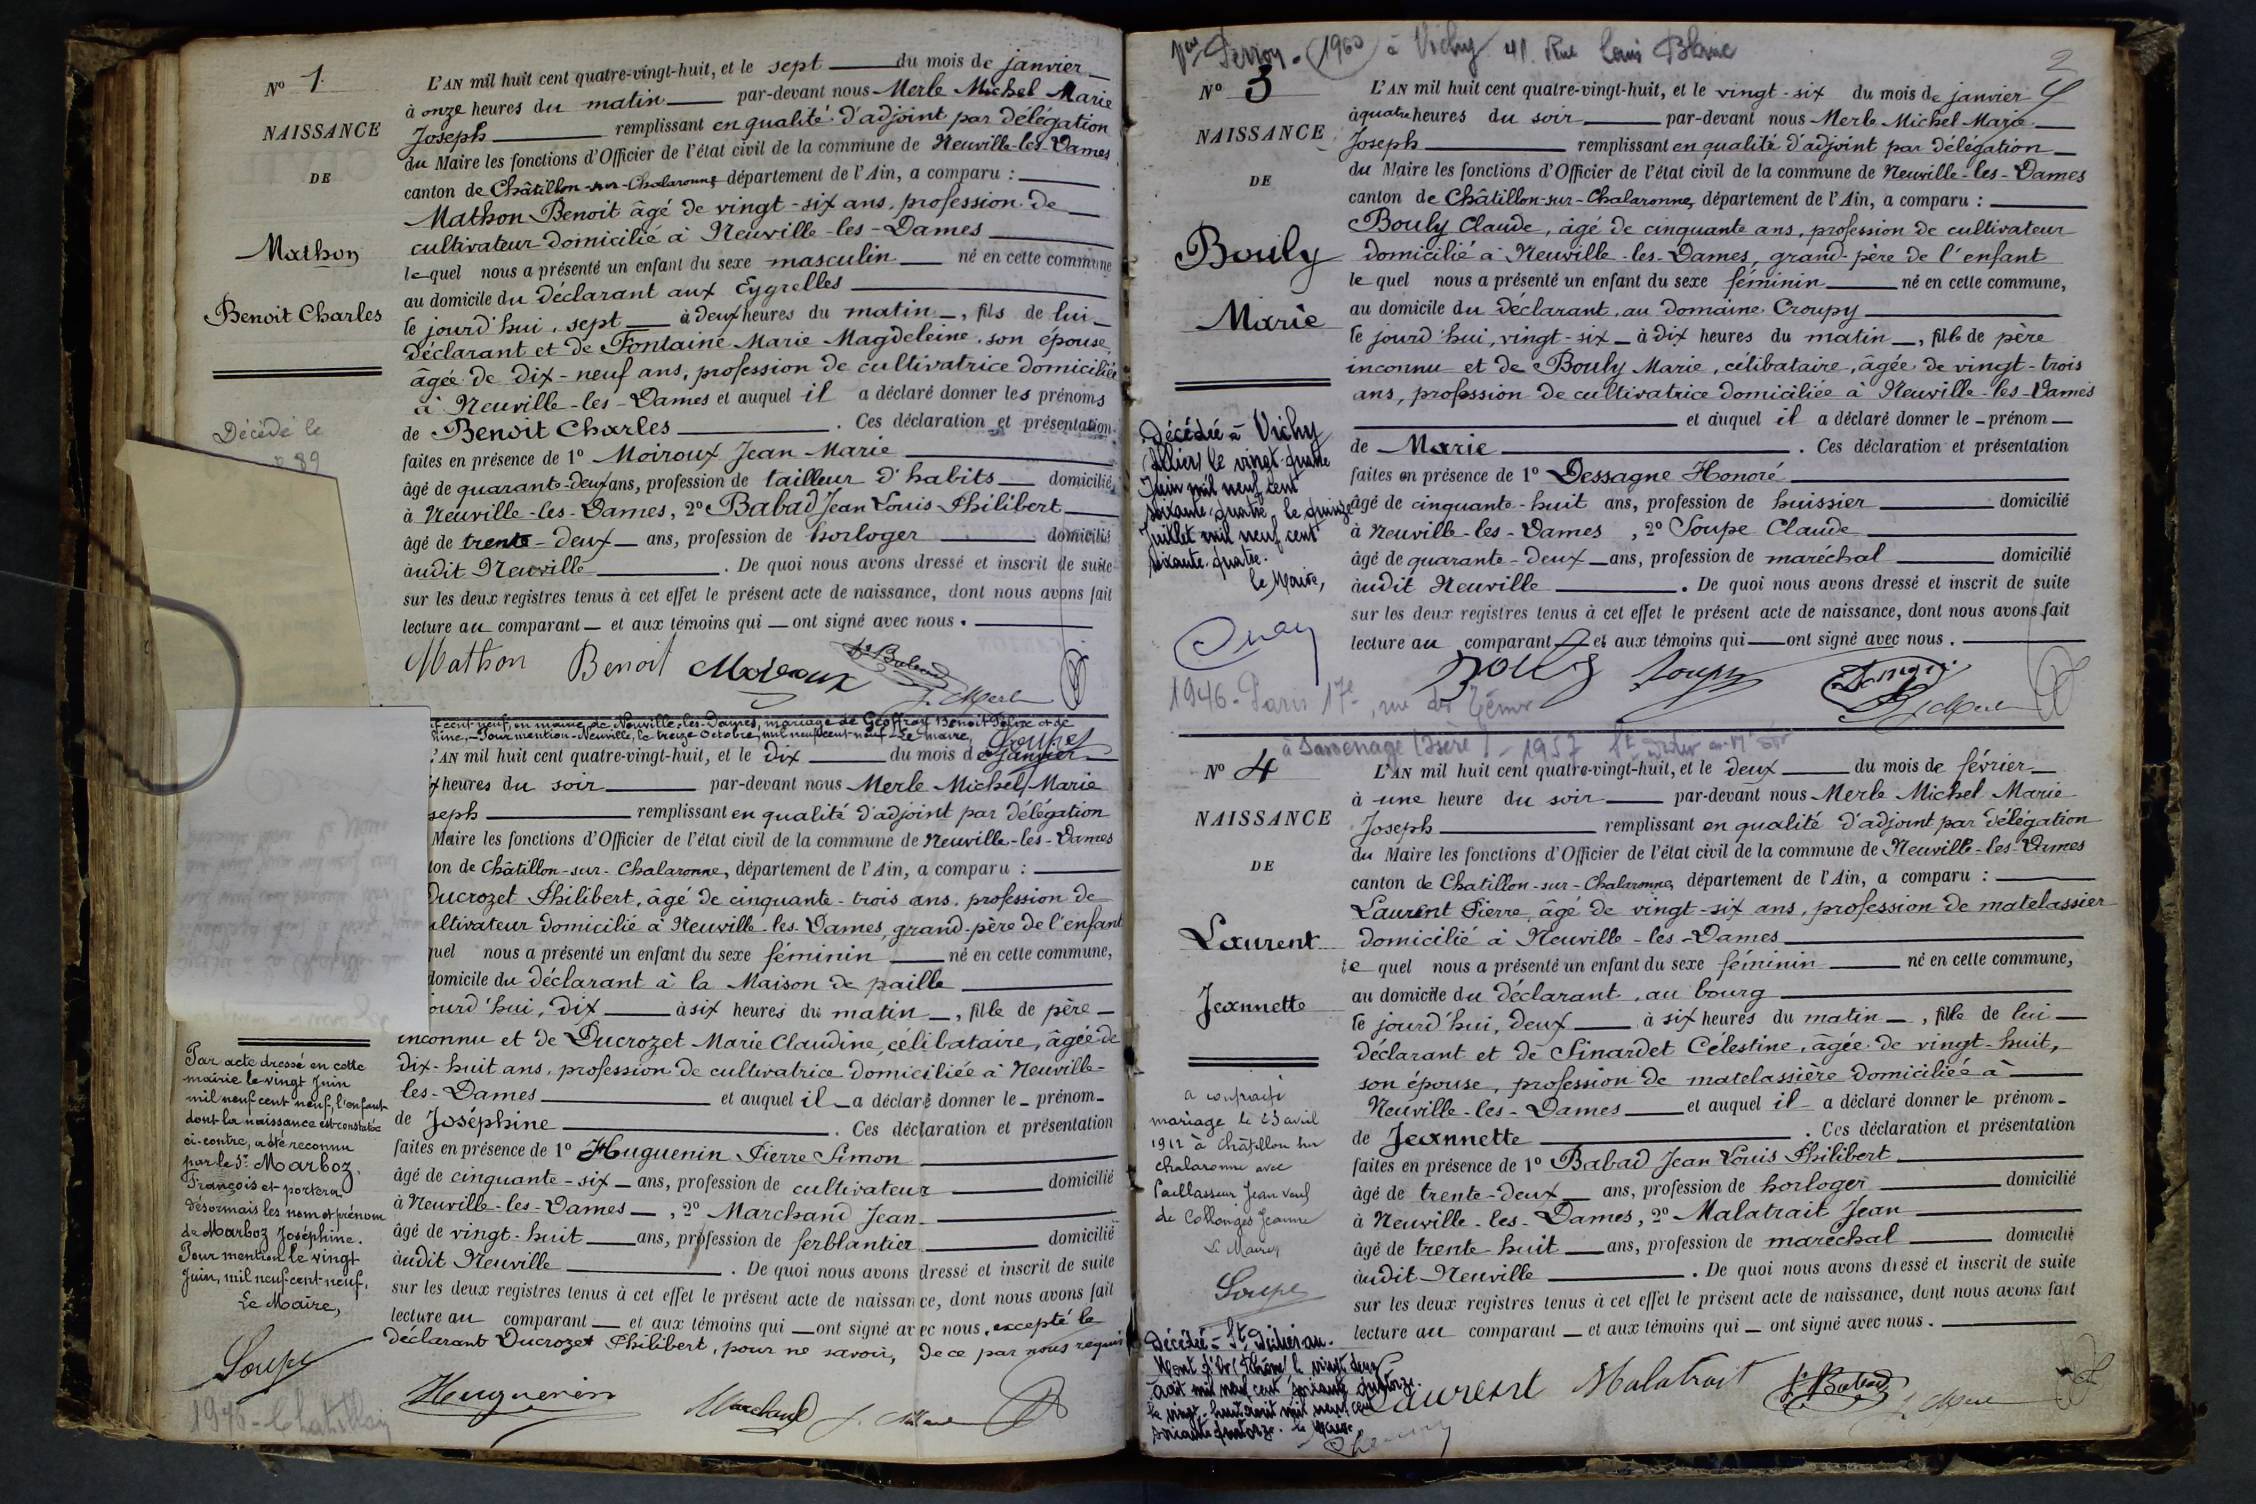 N° 1
NAISSANCE
DE
Mathon
Benoit Charles
Décédé le
89
L'AN mil huit cent quatre-vingt-huit, et le sept du mois de janvier
à onze heures du matin par-devant nous Merle Michel Marie
Joseph remplissant en qualité d'adjoint par délégation
du Maire les fonctions d'Officier de l'état civil de la commune de Neuville-les-Dames
canton de Châtillon-sur-Chalaronne département de l'Ain, a comparu :
Mathon Benoit âgé de vingt-six ans, profession de
cultivateur domicilié à Neuville-les-Dames
lequel nous a présenté un enfant du sexe masculin né en cette commune
au domicile du déclarant aux Eygrelles
le jourd'hui, sept à deux heures du matin, fils de lui
déclarant et de Fontaine Marie Magdeleine, son épouse,
âgée de dix-neuf ans, profession de cultivatrice domiciliée
à Neuville-les-Dames et auquel il a déclaré donner les prénoms
de Benoit Charles. Ces déclaration et présentation
faites en présence de 1° Moiroux Jean Marie
âgé de quarante-deux ans, profession de tailleur d'habits domicilié
à Neuville-les-Dames, 2° Babad Jean Louis Philibert
âgé de trente-deux ans, profession de horloger domicilié
audit Neuville. De quoi nous avons dressé et inscrit de suite
sur les deux registres tenus à cet effet le présent acte de naissance, dont nous avons fait
lecture au comparant et aux témoins qui ont signé avec nous.
Mathon Benoit Moiroux Babad J. Merle
cent neuf, en mairie de Neuville-les-Dames, mariage de Geoffray Benoit Félix et de
Pour mention Neuville, le treize Octobre, mil neuf cent neuf Le Maire, Soupe
L'AN mil huit cent quatre-vingt-huit, et le dix du mois de janvier
heures du soir par-devant nous Merle Michel Marie
seph remplissant en qualité d'adjoint par délégation
Maire les fonctions d'Officier de l'état civil de la commune de Neuville-les-Dames
ton de Châtillon-sur-Chalaronne, département de l'Ain, a comparu :
Ducrozet Philibert, âgé de cinquante-trois ans, profession de
ultivateur domicilié à Neuville-les-Dames, grand-père de l'enfant
quel nous a présenté un enfant du sexe féminin né en cette commune,
domicile du déclarant à la Maison de paille
ourd'hui, dix à six heures du matin, fille de père
inconnu et de Ducrozet Marie Claudine, célibataire, âgée de
dix-huit ans, profession de cultivatrice domiciliée à Neuville-
les-Dames et auquel il a déclaré donner le prénom
de Joséphine. Ces déclaration et présentation
faites en présence de 1° Huguenin Pierre Simon
âgé de cinquante-six ans, profession de cultivateur domicilié
à Neuville-les-Dames, 2° Marchand Jean
âgé de vingt-huit ans, profession de ferblantier domicilié
audit Neuville. De quoi nous avons dressé et inscrit de suite
sur les deux registres tenus à cet effet le présent acte de naissance, dont nous avons fait
lecture au comparant et aux témoins qui ont signé avec nous, excepté le
déclarant Ducrozet Philibert, pour ne savoir, de ce par nous requis
Huguenin Marchand J. Merle
Par acte dressé en cette
mairie le vingt Juin
mil neuf cent neuf, l'enfant
dont la naissance est constatée
ci-contre, a été reconnu
par le Sr Marboz
François et portera
désormais les nom et prénom
de Marboz Joséphine.
Pour mention le vingt
Juin, mil neuf cent neuf.
Le Maire,
Soupe
1976 - Chatillon
Vve Perroy. (1960) à Vichy 41. Rue Louis Blanc
2
N° 3
NAISSANCE
DE
Bouly
Marie
Décédée à Vichy
(Allier) le vingt-quatre
Juin mil neuf cent
soixante-quatre, le quinze
Juillet mil neuf cent
soixante-quatre.
Le Maire,
1946 - Paris 17e, rue des
L'AN mil huit cent quatre-vingt-huit, et le vingt-six du mois de janvier
à quatre heures du soir par-devant nous Merle Michel Marie
Joseph remplissant en qualité d'adjoint par délégation
du Maire les fonctions d'Officier de l'état civil de la commune de Neuville-les-Dames
canton de Châtillon-sur-Chalaronne, département de l'Ain, a comparu :
Bouly Claude, âgé de cinquante ans, profession de cultivateur
domicilié à Neuville-les-Dames, grand-père de l'enfant
lequel nous a présenté un enfant du sexe féminin né en cette commune,
au domicile du déclarant, au domaine Croupy
le jourd'hui, vingt-six à dix heures du matin, fille de père
inconnu et de Bouly Marie, célibataire, âgée de vingt-trois
ans, profession de cultivatrice domiciliée à Neuville-les-Dames
et auquel il a déclaré donner le prénom
de Marie. Ces déclaration et présentation
faites en présence de 1° Dessagne Honoré
âgé de cinquante-huit ans, profession de huissier domicilié
à Neuville-les-Dames, 2° Soupe Claude
âgé de quarante-deux ans, profession de maréchal domicilié
audit Neuville. De quoi nous avons dressé et inscrit de suite
sur les deux registres tenus à cet effet le présent acte de naissance, dont nous avons fait
lecture au comparant et aux témoins qui ont signé avec nous.
Bouly Soupe J. Merle
à Sassenage (Isère) - 1957
N° 4
NAISSANCE
DE
Laurent
Jeannette
a contracté
mariage le 23 avril
1912 à Châtillon sur
Chalaronne avec
Paillasseur Jean veuf
de Collonges Jeanne
Le Maire
Soupe
Décédée à St Didier au
Mont d'Or (Rhône) le vingt deux
Août mil neuf cent soixante quatorze.
Le vingt-huit août mil neuf cent
soixante quatorze. Le Maire
L'AN mil huit cent quatre-vingt-huit, et le deux du mois de février
à une heure du soir par-devant nous Merle Michel Marie
Joseph remplissant en qualité d'adjoint par délégation
du Maire les fonctions d'Officier de l'état civil de la commune de Neuville-les-Dames
canton de Chatillon-sur-Chalaronne, département de l'Ain, a comparu :
Laurent Pierre, âgé de vingt-six ans, profession de matelassier
domicilié à Neuville-les-Dames
le quel nous a présenté un enfant du sexe féminin né en cette commune,
au domicile du déclarant, au bourg
le jourd'hui, deux à six heures du matin, fille de lui
déclarant et de Pinardet Célestine, âgée de vingt-huit,
son épouse, profession de matelassière domiciliée à
Neuville-les-Dames et auquel il a déclaré donner le prénom
de Jeannette. Ces déclaration et présentation
faites en présence de 1° Babad Jean Louis Philibert
âgé de trente-deux ans, profession de horloger domicilié
à Neuville-les-Dames, 2° Malatrait Jean
âgé de trente huit ans, profession de maréchal domicilié
audit Neuville. De quoi nous avons dressé et inscrit de suite
sur les deux registres tenus à cet effet le présent acte de naissance, dont nous avons fait
lecture au comparant et aux témoins qui ont signé avec nous.
Laurent Malatrait Babad J. Merle